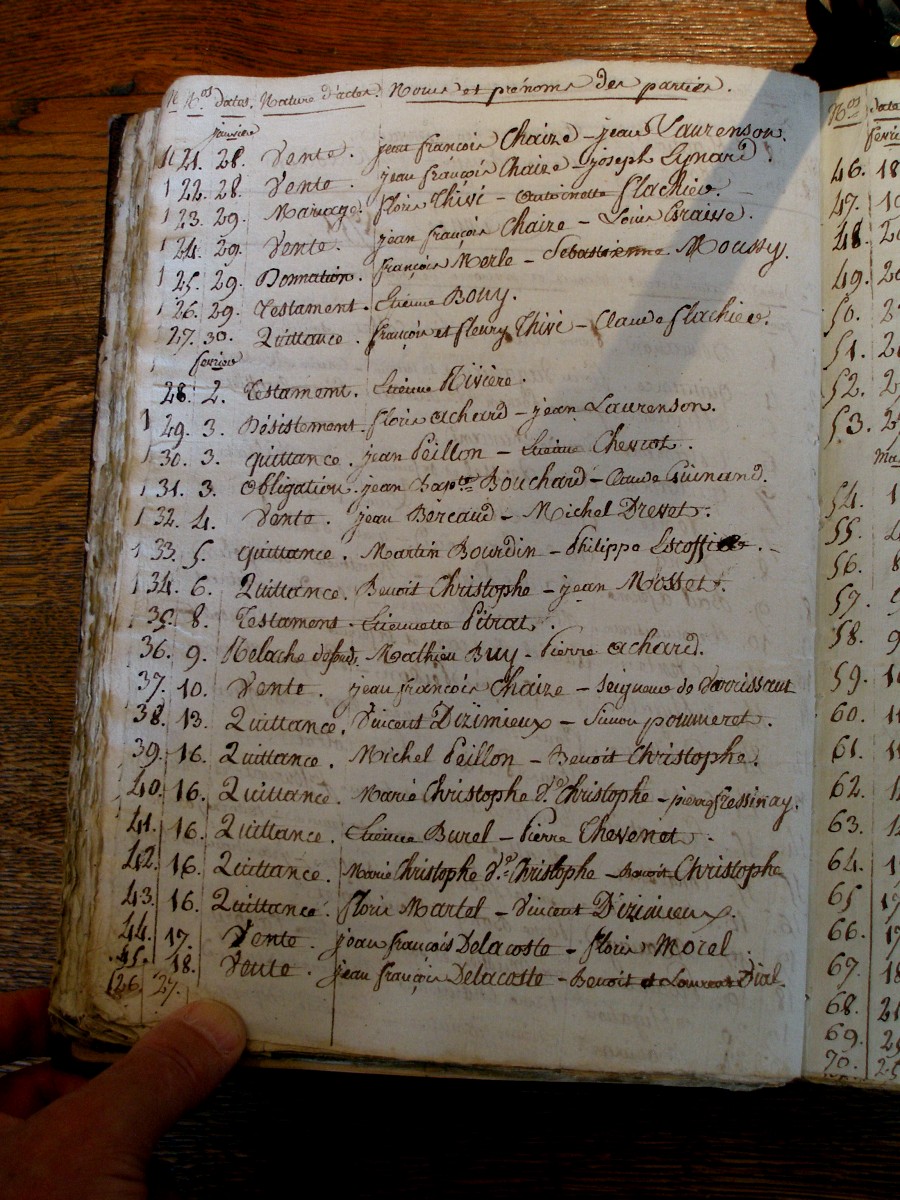 Nos dates. Nature d'actes. Noms et prénoms des parties.
janvier
21. 28. Vente. jean françois Chaize - jean Laurenson.
22. 28. Vente. jean françois Chaize - joseph Eynard.
23. 29. Mariage. floris Thivi - Antoinette flachier.
24. 29. Vente. jean françois Chaize - Louis
25. 29. Donnation. françois Merle - Sebastienne Moussy.
26. 29. Testament. Etienne Bouy.
27. 30. Quittance. françois et fleury Thivi - Claude flachier.
fevrier
28. 2. Testament. Etienne Rivière.
29. 3. Désistement. floris achard - jean Laurenson.
30. 3. quittance. jean Peillon - Etienne Chevrot.
31. 3. Obligation. jean Bapte Bouchard - Claude Guinand.
32. 4. Vente. jean Bercaud - Michel Drevet.
33. 5. quittance. Martin Bourdin - Philippe
34. 6. Quittance. Benoit Christophe - jean Mosset.
35. 8. Testament. Etiennette Pitrat.
36. 9. Relache Mathieu Buy - Pierre achard.
37. 10. Vente. jean françois Chaize - Seigneur de
38. 13. Quittance. Vincent Dizimieux - Simon pommeret.
39. 16. Quittance. Michel Peillon - Benoit Christophe.
40. 16. Quittance. Marie Christophe d.te Christophe - pierre fressinay.
41. 16. Quittance. Etienne Burel - Pierre Thevenet.
42. 16. Quittance. Marie Christophe d.te Christophe - Benoit Christophe
43. 16. Quittance. floris Martel - Vincent Dizimieux.
44. 17. Vente. jean françois Delacoste - floris Morel
45. 18. Vente. jean françois Delacoste - Benoit et Laurent Dial.
126. 27.
Nos
fevri
46. 18
47.
48. 20
49. 20
50. 2
51. 20
52. 2
53. 2
Ma
54. 1
55.
56. 8
57. 9
58. 9
59.
60. 11
61.
62. 12
63. 12
64. 1
65 17
66. 17
67. 18
68. 21
69. 25
70. 25